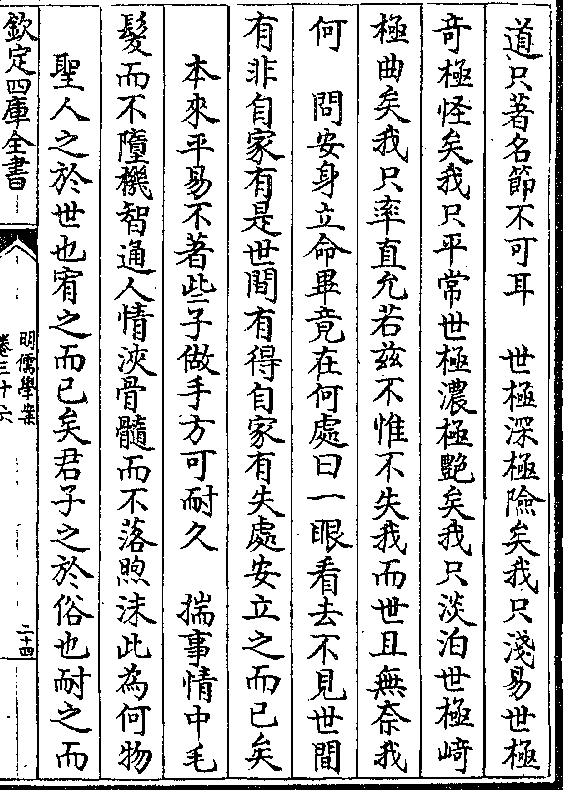 道只著名節不可耳　世極深極險矣我只淺易世極
竒極怪矣我只平常世極濃極艷矣我只淡泊世極﨑
極曲矣我只率直允若兹不惟不失我而世且無奈我
何　問安身立命畢竟在何處曰一眼看去不見世間
有非自家有是世間有得自家有失處安立之而已矣
本來平易不著些子做手方可耐久　揣事情中毛
髪而不墮機智通人情浹骨髓而不落煦沫此為何物
聖人之於世也宥之而已矣君子之於俗也耐之而
欽定四庫全書
明儒學案
卷三十六
二十四